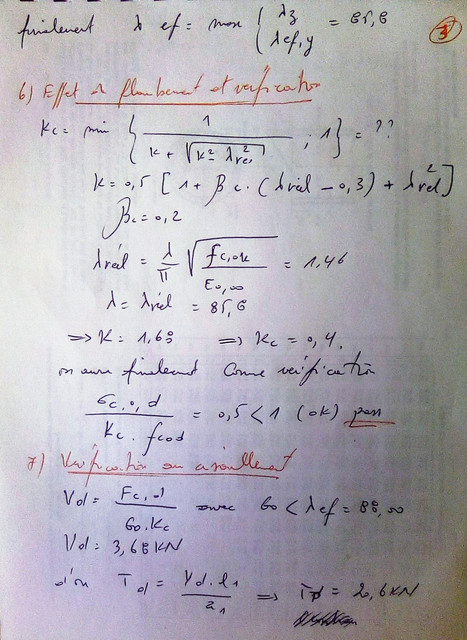 finalement λ ef = max { λz = 85,6
λef,y
6) Effet de flambement et vérification
Kc = min { 1 / (K + √(K² - λ²rel)) ; 1 } = ??
K = 0,5 [ 1 + βc . (λrél - 0,3) + λ²rél ]
βc = 0,2
λrél = λ/π √(fc,ok / E0,oo) = 1,46
λ = λrél = 85,6
⇒ K = 1,68 ⇒ Kc = 0,4.
on aura finalement comme vérification
σc.o,d / (Kc . fcod) = 0,5 < 1 (ok)
7) Vérification au cisaillement
Vd = Fc,d / (60.Kc) avec 60 < λef = 88,00
Vd = 3,68 KN
d'où Td = Vd . l1 / a1 ⇒ Td = 20,6 KN